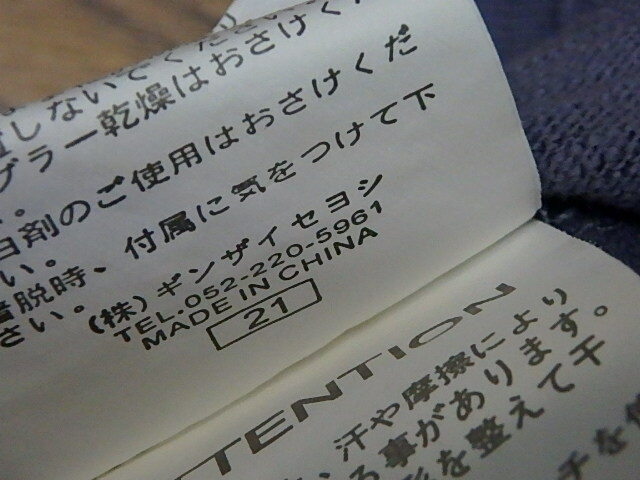 しないでくださ
ブラー乾燥はおさけくだ
剤のご使用はおさけくだ
い。
着脱時、付属に気をつけて下
さい。
(株)ギンザイセヨシ
TEL.052-220-5961
MADE IN CHINA
21
ATTENTION
、汗や摩擦により
る事があります。
を整えて干